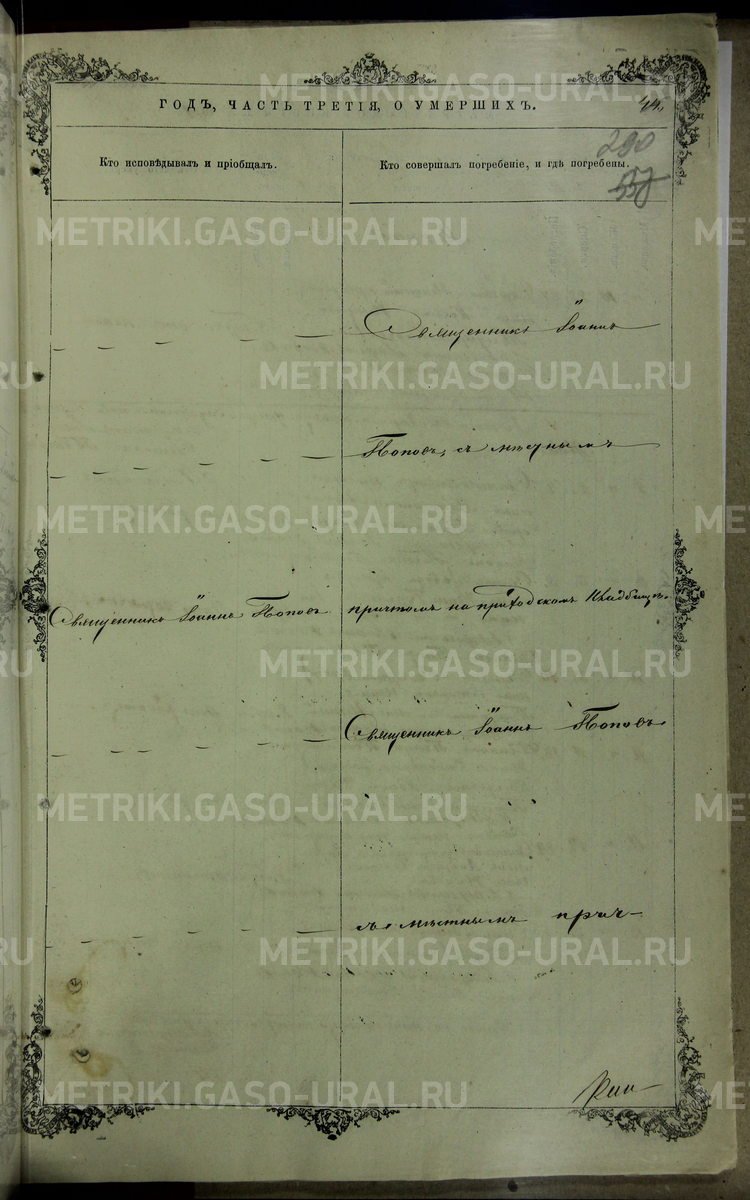 ГОДЪ, ЧАСТЬ ТРЕТІЯ, О УМЕРШИХЪ.
44.
290
Кто исповѣдывалъ и пріобщалъ.
Кто совершалъ погребеніе, и гдѣ погребены.
Священникъ Іоаннъ
Поповъ, съ мѣстнымъ
Священникъ Іоаннъ Поповъ
причтомъ на приходскомъ кладбищѣ.
Священникъ Іоаннъ Поповъ
съ мѣстнымъ прич-
METRIKI.GASO-URAL.RU